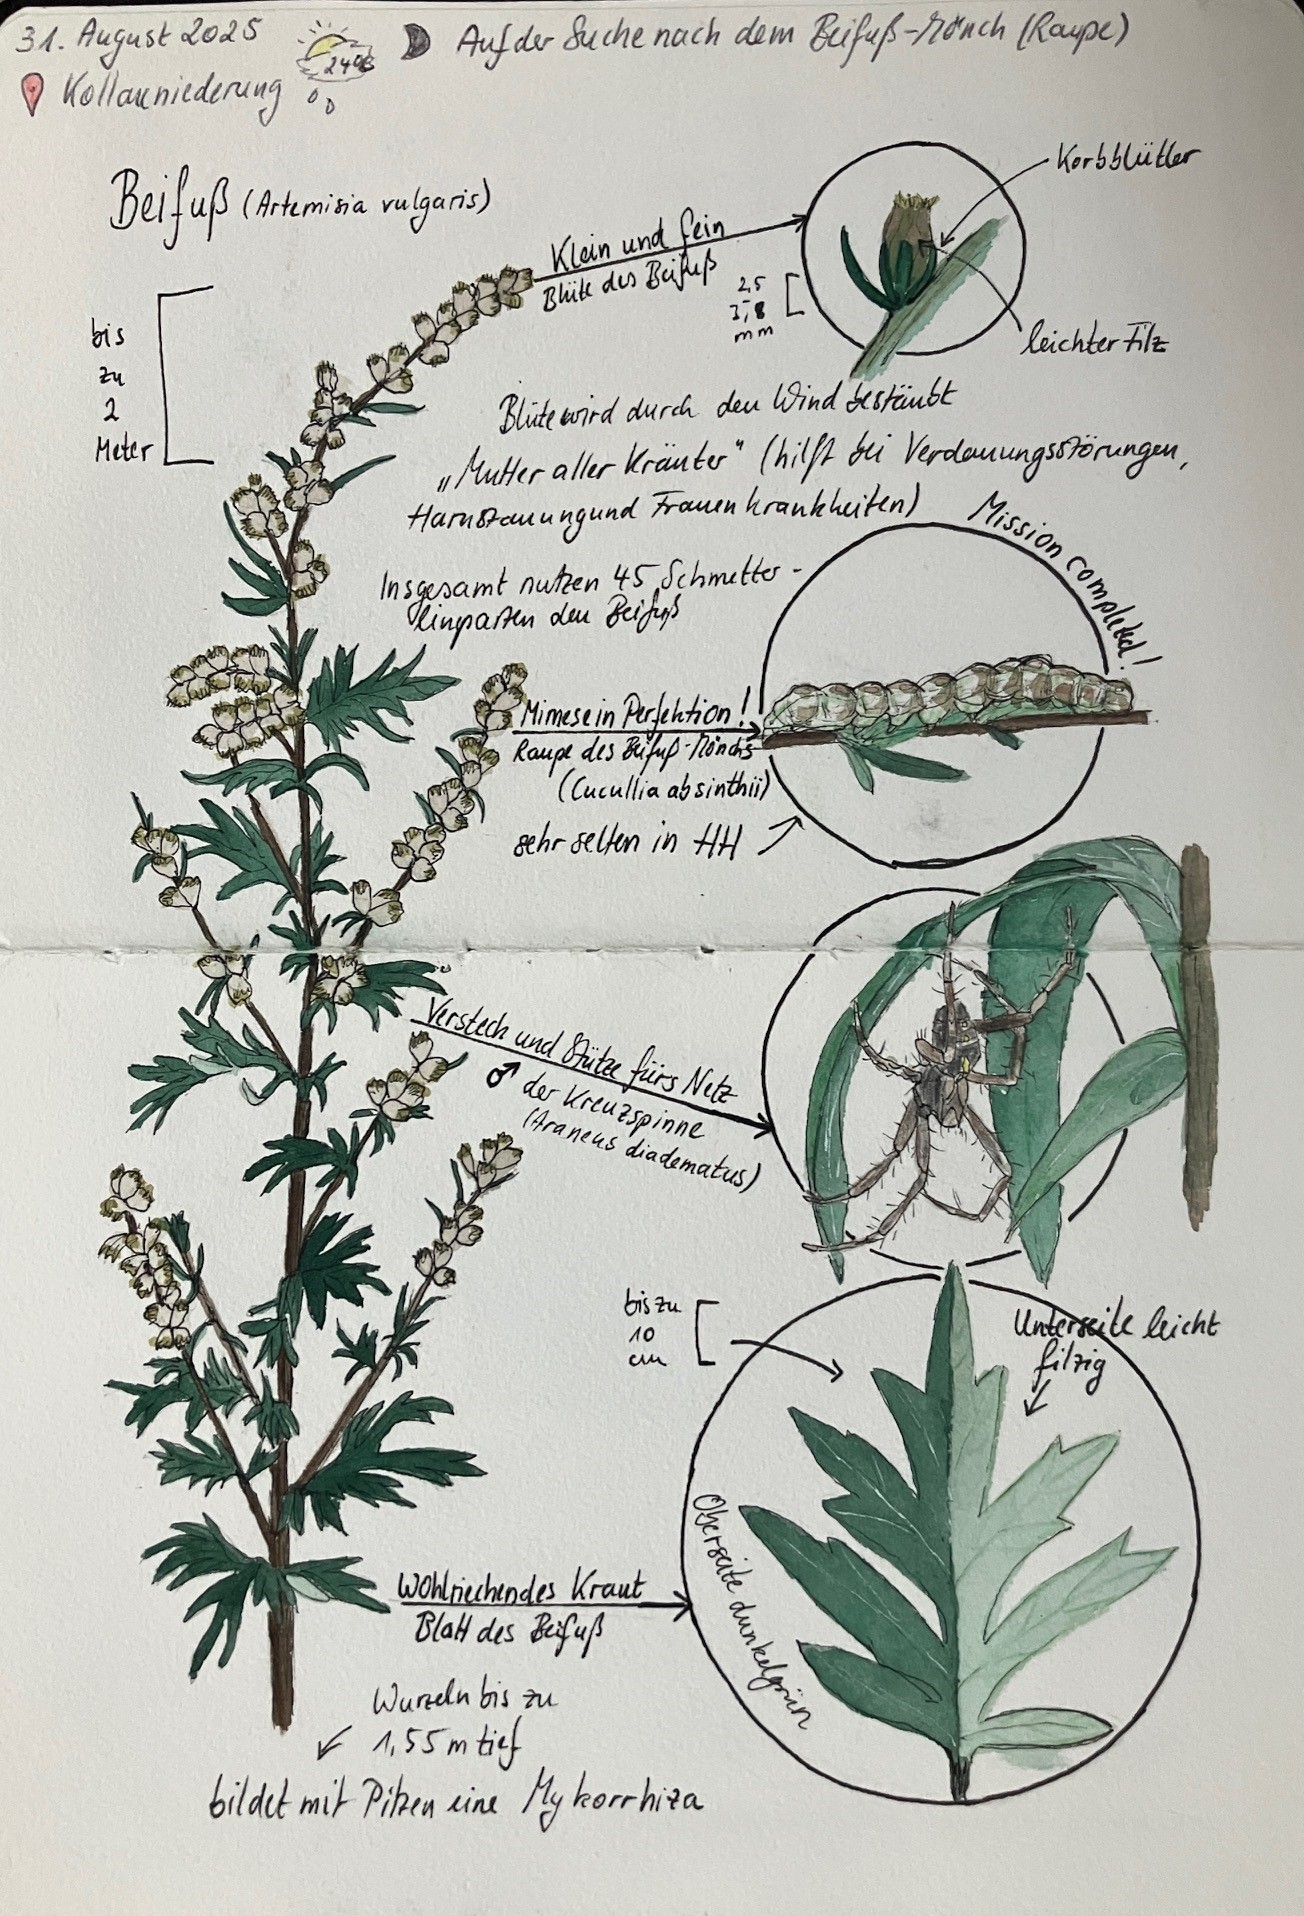 31. August 2025
24°C
Auf der Suche nach dem Beifuß-Mönch (Raupe)
Kollauniederung
Beifuß (Artemisia vulgaris)
Korbblütler
Klein und fein
Blüte des Beifuß
2,5
-
3,8
mm
leichter Filz
bis
zu
2
Meter
Blüte wird durch den Wind bestäubt
„Mutter aller Kräuter" (hilft bei Verdauungsstörungen,
Harnstauung und Frauenkrankheiten)
Insgesamt nutzen 45 Schmetter-
lingsarten den Beifuß
Mission completed!
Mimese in Perfektion!
Raupe des Beifuß-Mönchs
(Cucullia absinthii)
sehr selten in HH
Versteck und Stütze fürs Netz
♂ der Kreuzspinne
(Araneus diadematus)
bis zu
10
cm
Unterseite leicht
filzig
Oberseite dunkelgrün
Wohlriechendes Kraut
Blatt des Beifuß
Wurzeln bis zu
1,55 m tief
bildet mit Pilzen eine Mykorrhiza